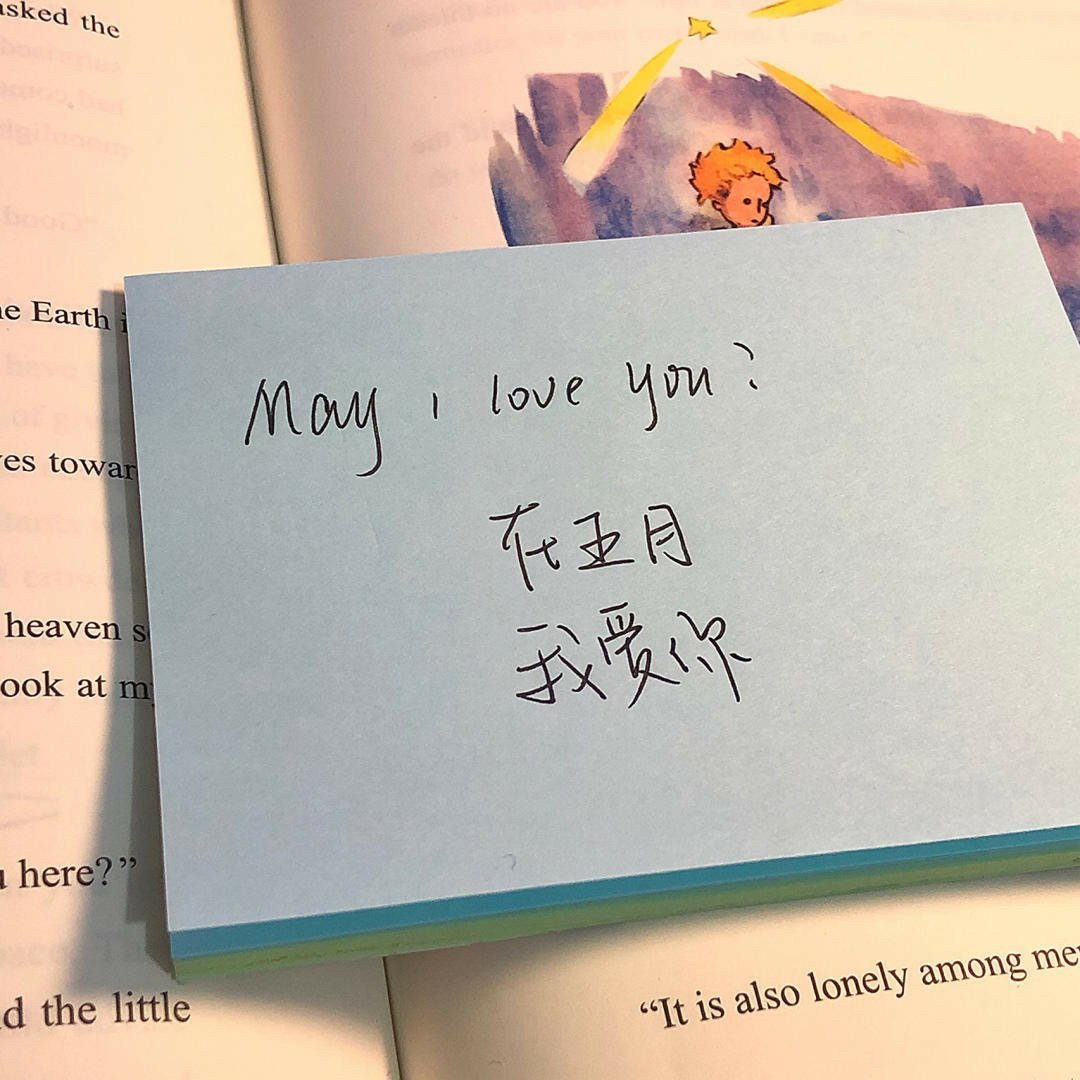 asked the
Earth
towar
heaven
look at
here?”
the little
May i love you?
在五月
我爱你
“It is also lonely among